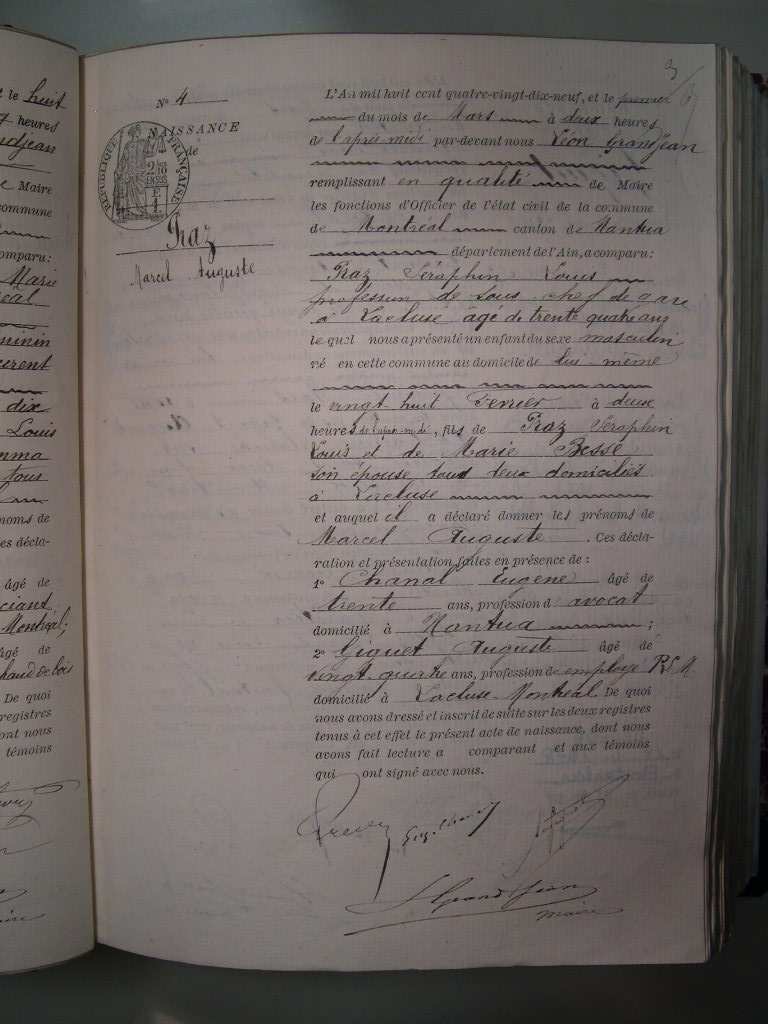 le huit
heures
ndjean
Maire
commune
comparu :
Marie
éal
minin
urent
dix
Louis
mma
tous
noms de
es décla-
âgé de
ciant
Montréal ;
âgé de
haud de bois
De quoi
registres
ont nous
témoins
N° 4
NAISSANCE
de
RÉPUBLIQUE FRANÇAISE
Praz
Marcel Auguste
3
L'An mil huit cent quatre-vingt-dix-neuf, et le premier
du mois de Mars à deux heures
de l'après midi par-devant nous Léon Grandjean
remplissant en qualité de Maire
les fonctions d'Officier de l'état civil de la commune
de Montréal canton de Nantua
département de l'Ain, a comparu :
Praz Séraphin Louis
profession de sous chef de gare
à Lacluse âgé de trente quatre ans
lequel nous a présenté un enfant du sexe masculin
né en cette commune au domicile de lui-même
le vingt huit Fevrier à deux
heures de l'après-midi, fils de Praz Séraphin
Louis et de Marie Besse
son épouse tous deux domiciliés
à Lacluse
et auquel il a déclaré donner les prénoms de
Marcel Auguste. Ces décla-
ration et présentation faites en présence de :
1° Chanal Eugène âgé de
trente ans, profession d'avocat
domicilié à Nantua ;
2° Giguet Auguste âgé de
vingt quatre ans, profession de employé P.L.M
domicilié à Lacluse-Montréal De quoi
nous avons dressé et inscrit de suite sur les deux registres
tenus à cet effet le présent acte de naissance, dont nous
avons fait lecture a comparant et aux témoins
qui ont signé avec nous.
L. Grandjean
maire